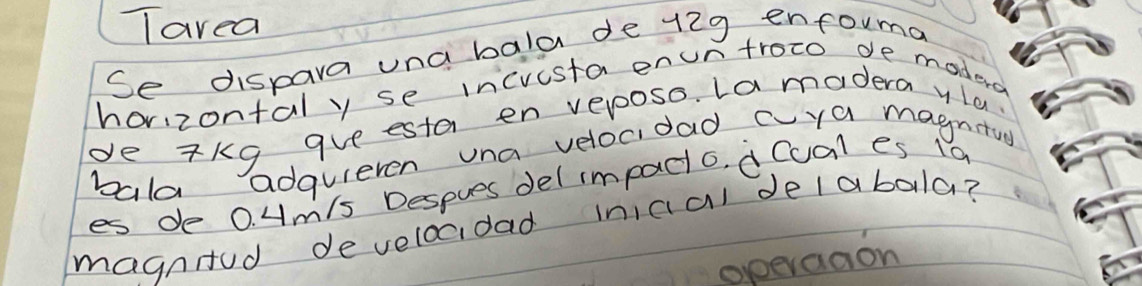 Tarea
Se dispara una bala de 12g enforma
horizontal y se incrusta en un troco de madera
de 7Kg que esta en reposo. La madera y la
bala adquieren una velocidad cuya magnitud
es de 0.4m/s Despues del impacto. ¿Cual es la
magnitud de velocidad inicial de la bala?
operacion